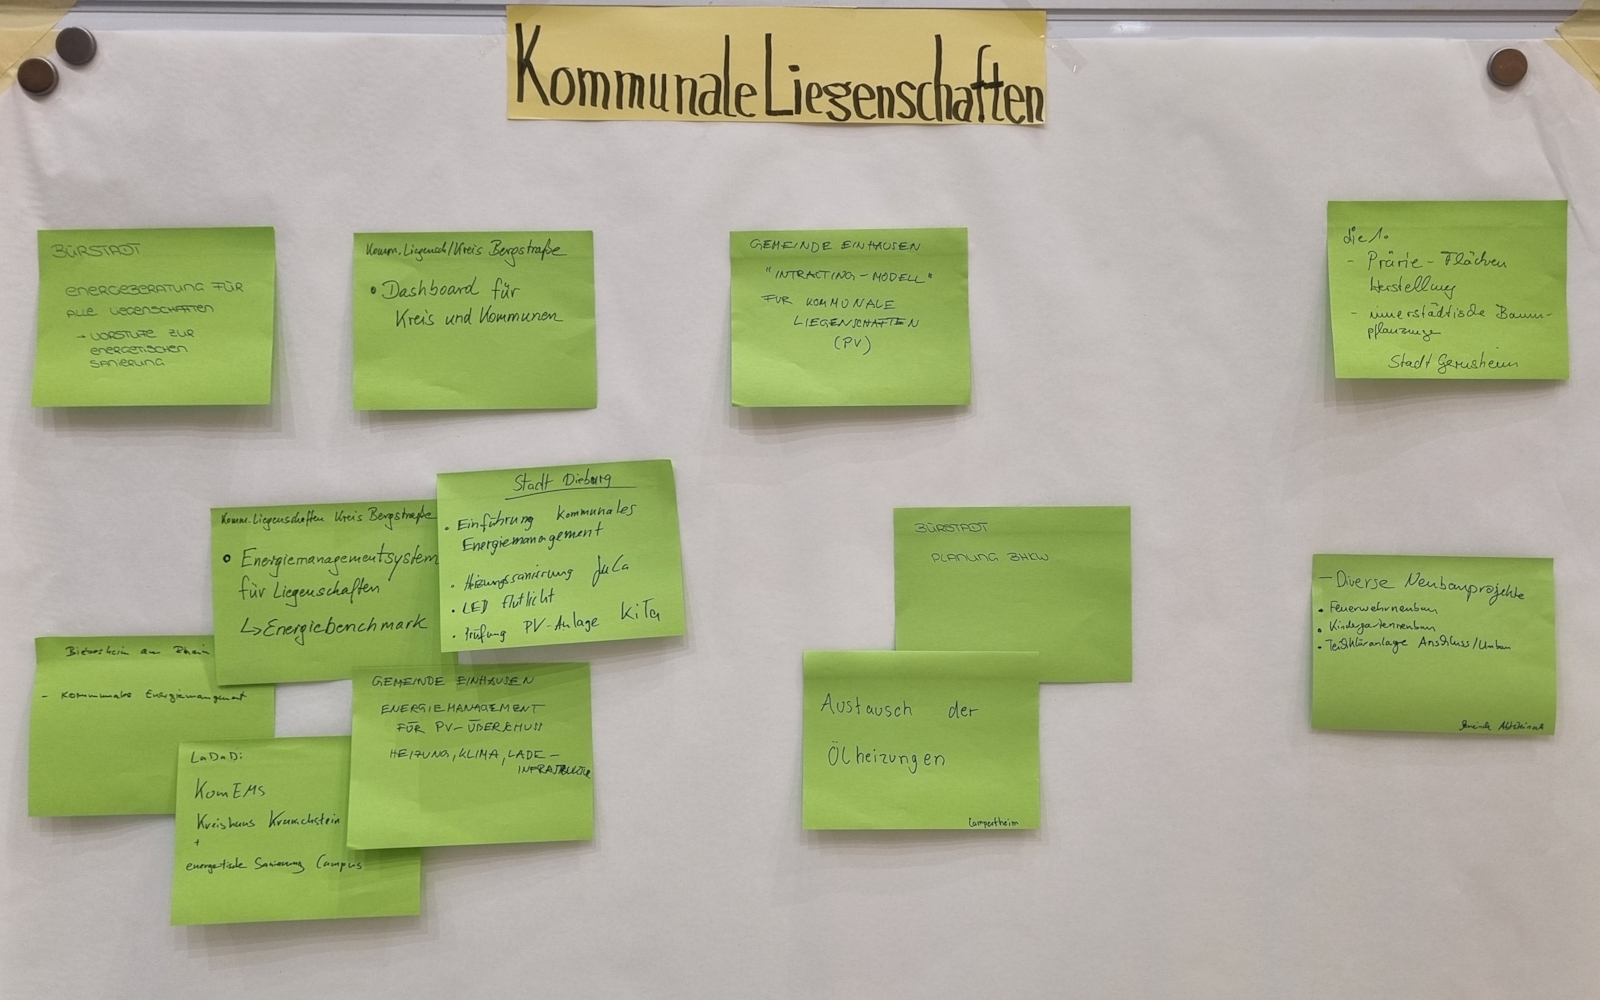 Kommunale Liegenschaften
BÜRSTADT
ENERGIEBERATUNG FÜR
ALLE LIEGENSCHAFTEN
→ VORSTUFE ZUR
ENERGETISCHEN
SANIERUNG
Komm. Liegensch/Kreis Bergstraße
• Dashboard für
Kreis und Kommunen
GEMEINDE EINHAUSEN
"INTRACTING-MODELL"
FÜR KOMMUNALE
LIEGENSCHAFTEN
(PV)
- Prärie-Flächen
Herstellung
- innerstädtische Baum-
pflanzunge
Stadt Gernsheim
Komm. Liegenschaften Kreis Bergstraße
• Energiemanagementsystem
für Liegenschaften
↳ Energiebenchmark
Stadt Dieburg
• Einführung kommunales
Energiemanagement
• Heizungssanierung JuCa
• LED Flutlicht
• Prüfung PV-Anlage KiTa
BÜRSTADT
PLANUNG BHKW
— Diverse Neubauprojekte
• Feuerwehrneubau
• Kindergartenneubau
• Teichkläranlage Anschluss/Umbau
Gemeinde Abtsteinach
am Rhein
- kommunales Energiemangement
GEMEINDE EINHAUSEN
ENERGIEMANAGEMENT
FÜR PV-ÜBERSCHUSS
HEIZUNG, KLIMA, LADE-
INFRASTRUKTUR
Austausch der
Ölheizungen
Lampertheim
LaDaDi:
KomEMS
Kreishaus Kranichstein
+
energetische Sanierung Campus